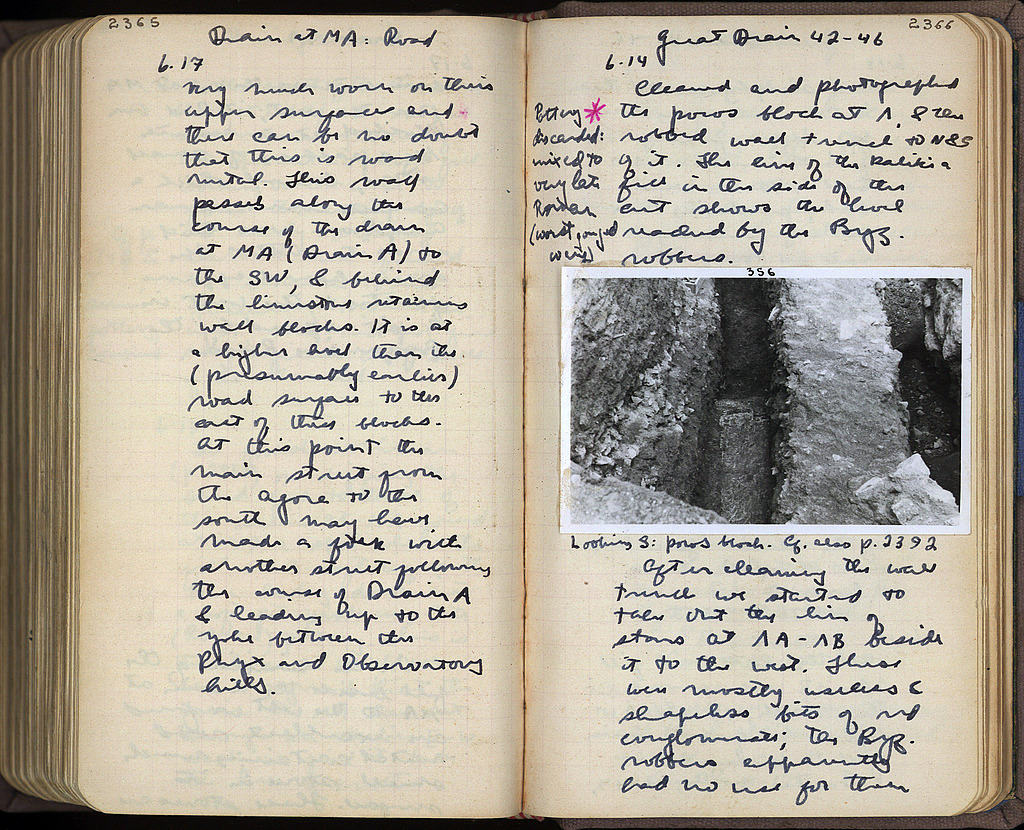 2365
Drain at MA: Road
6.17
very much worn on their
upper surfaces and
there can be no doubt
that this is road
metal. This road
passes along the
course of the drain
at MA (Drain A) to
the SW, & behind
the limestone retaining
wall blocks. It is at
a higher level than the
(presumably earlier)
road surface to the
east of these blocks.
At this point the
main street from
the agora to the
south may have
made a fork with
another street following
the course of Drain A
& leading up to the
yoke between the
Pnyx and Observatory
hills.
2366
Great Drain 42-46
6.14
Cleaned and photographed
the poros block at Λ, & the
robbed wall trench to N & S
of it. The line of the kalikia
fill in the side of the
cut shows the level
reached by the Byz.
robbers.
Pottery *
discarded:
mixed to
very late
Roman
(worst gouged
were)
356
Looking S: poros block. Cf. also p. 2392
After cleaning the wall
trench we started to
take out the line of
stones at ΛA-ΛB beside
it to the west. These
were mostly useless &
shapeless bits of red
conglomerate; the Byz.
robbers apparently
had no use for them